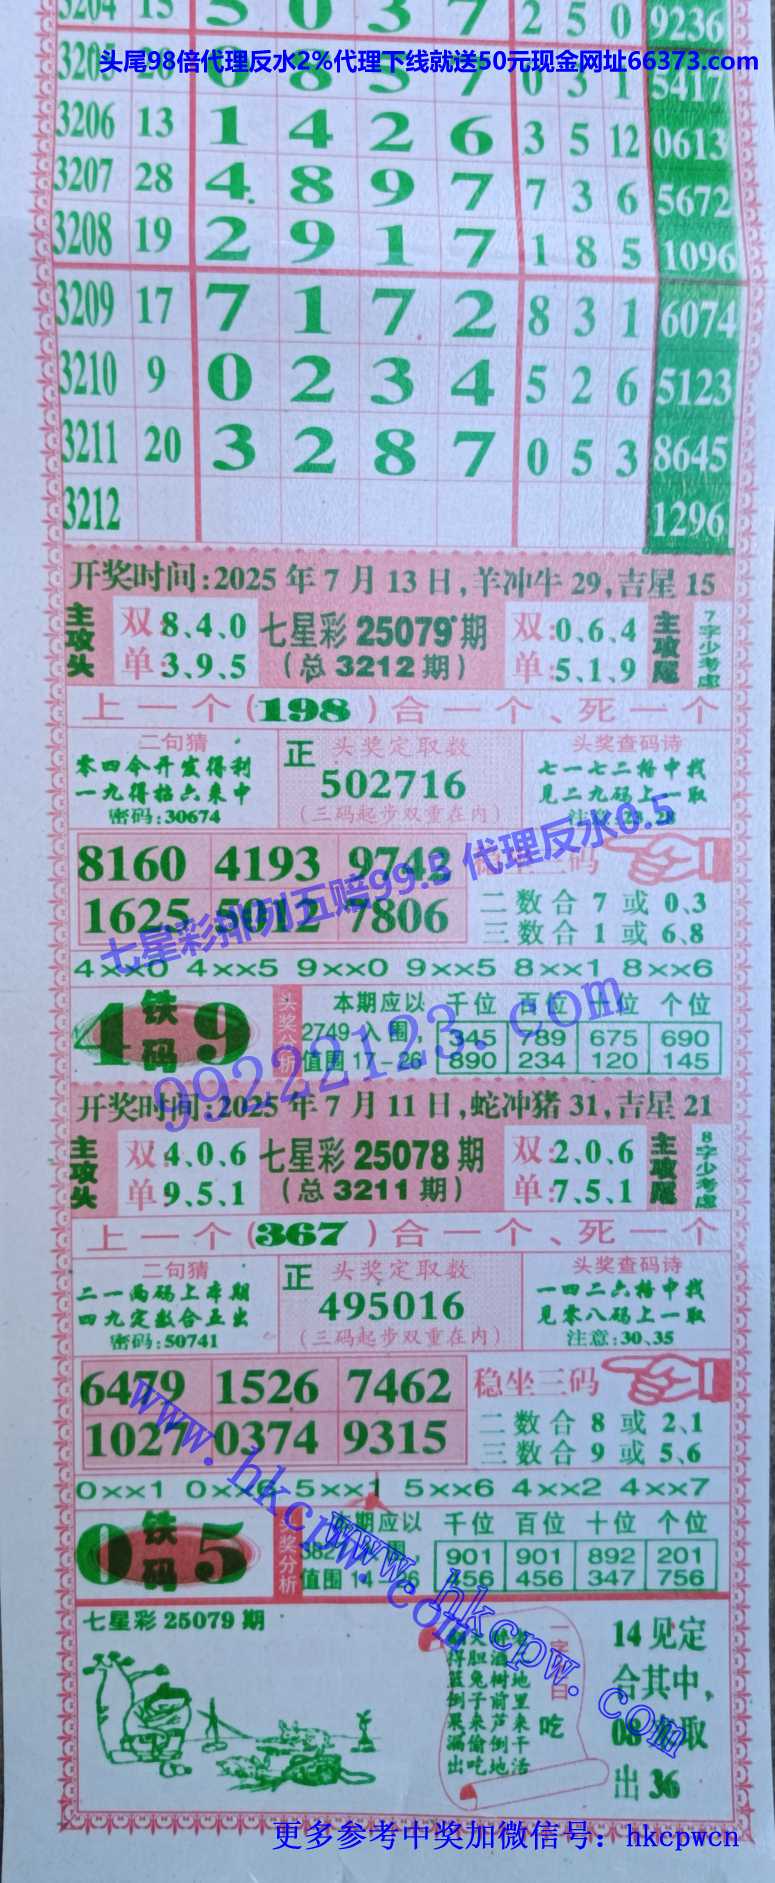 3204 15 5 0 3 7 2 5 0 9236
头尾98倍代理反水2%代理下线就送50元现金网址66373.com
3205 20 0 8 5 7 0 3 1 5417
3206 13 1 4 2 6 3 5 12 0613
3207 28 4 8 9 7 7 3 6 5672
3208 19 2 9 1 7 1 8 5 1096
3209 17 7 1 7 2 8 3 1 6074
3210 9 0 2 3 4 5 2 6 5123
3211 20 3 2 8 7 0 5 3 8645
3212 1296
开奖时间:2025年7月13日,羊冲牛29,吉星15
主攻头 双:8、4、0 单:3、9、5
七星彩25079期
(总3212期)
双:0、6、4 单:5、1、9 主攻尾
7字少考虑
上一个(198)合一个、死一个
二句猜
零四令开发得利
一九得福六来中
密码:30674
正 头奖定取数
502716
(三码起步双重在内)
头奖查码诗
七一七二格中找
见二九码上一取
注意:23、28
8160 4193 9742
1625 5012 7806
稳坐三码
二数合7或0、3
三数合1或6、8
七星彩排列五赔99.5 代理反水0.5
4××0 4××5 9××0 9××5 8××1 8××6
4 铁码 9
头奖分析
本期应以 千位 百位 十位 个位
2749入围, 345 789 675 690
值围17-26 890 234 120 145
99222123.com
开奖时间:2025年7月11日,蛇冲猪31,吉星21
主攻头 双:4、0、6 单:9、5、1
七星彩25078期
(总3211期)
双:2、0、6 单:7、5、1 主攻尾
8字少考虑
上一个(367)合一个、死一个
二句猜
二一两码上本期
四九定数合五出
密码:50741
正 头奖定取数
495016
(三码起步双重在内)
头奖查码诗
一四二六格中找
见零八码上一取
注意:30、35
6479 1526 7462
1027 0374 9315
稳坐三码
二数合8或2、1
三数合9或5、6
0××1 0××6 5××1 5××6 4××2 4××7
0 铁码 5
头奖分析
本期应以 千位 百位 十位 个位
入围, 901 901 892 201
值围14-26 756 456 347 756
www.hkcpw.com
www.hkcpw.com
七星彩25079期
地里来干活
树前芦倒地
兔子来偷吃
得篮倒果漏出
一字
吃
14见定
合其中,
08 取
出36
更多参考中奖加微信号：hkcpwcn